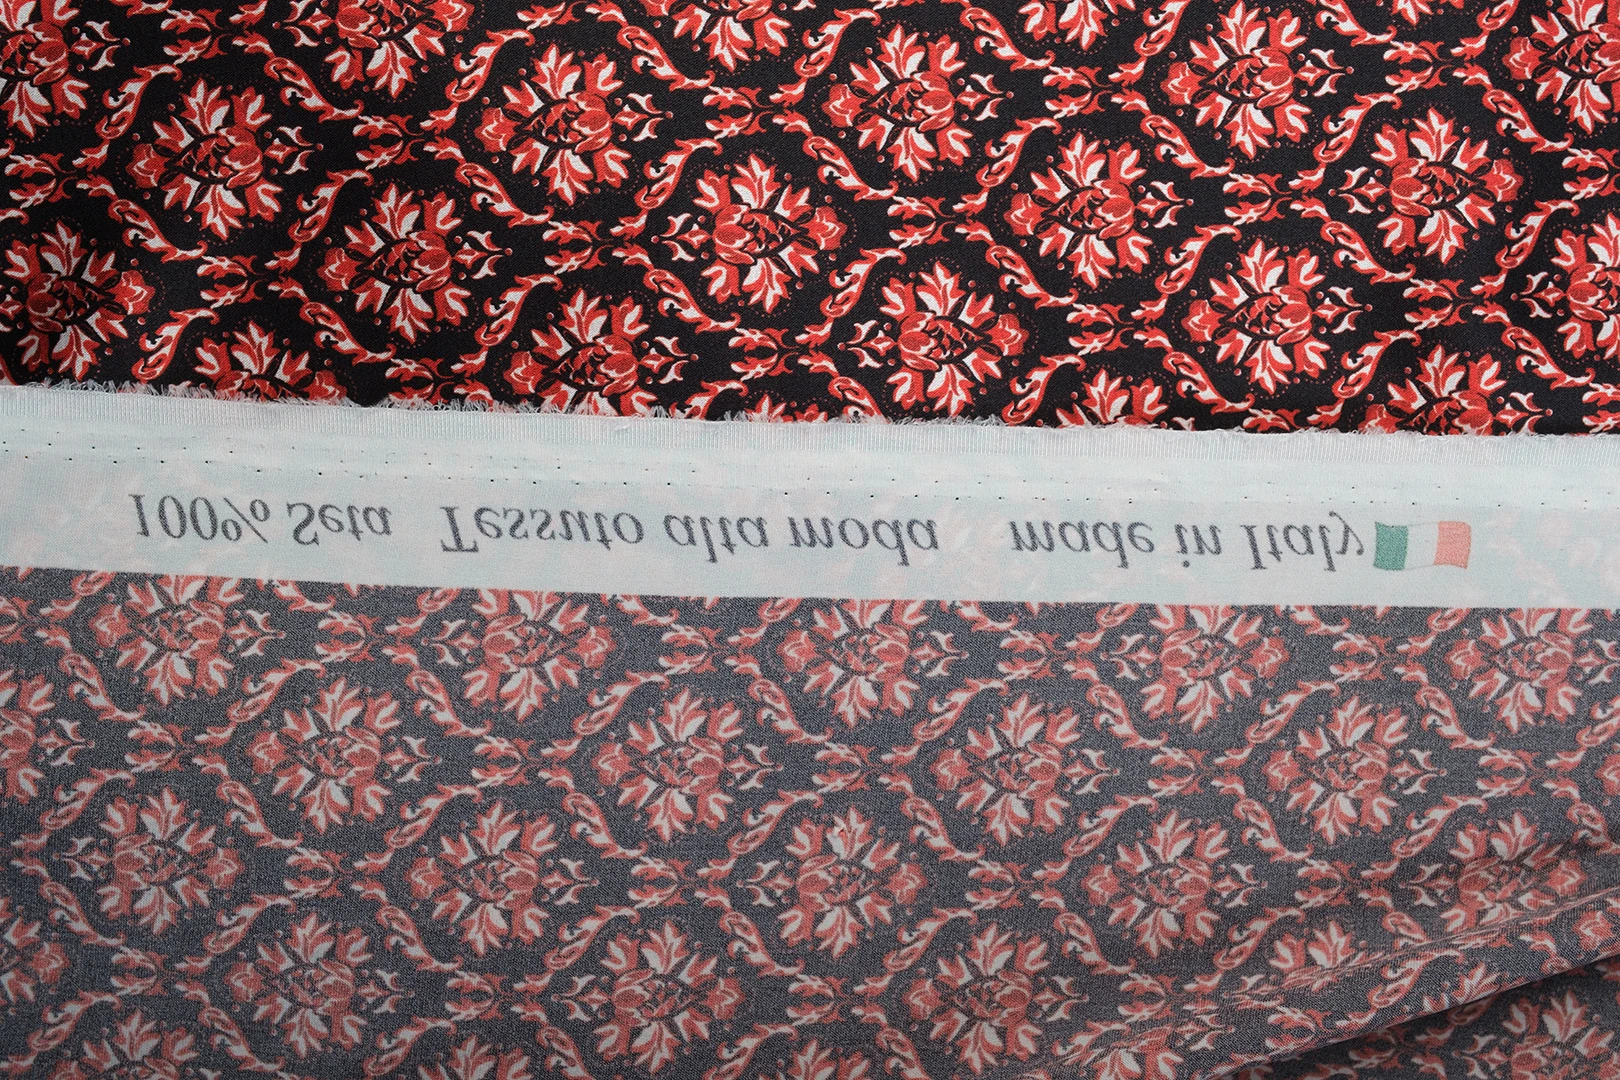 100% Seta Tessuto alta moda made in Italy